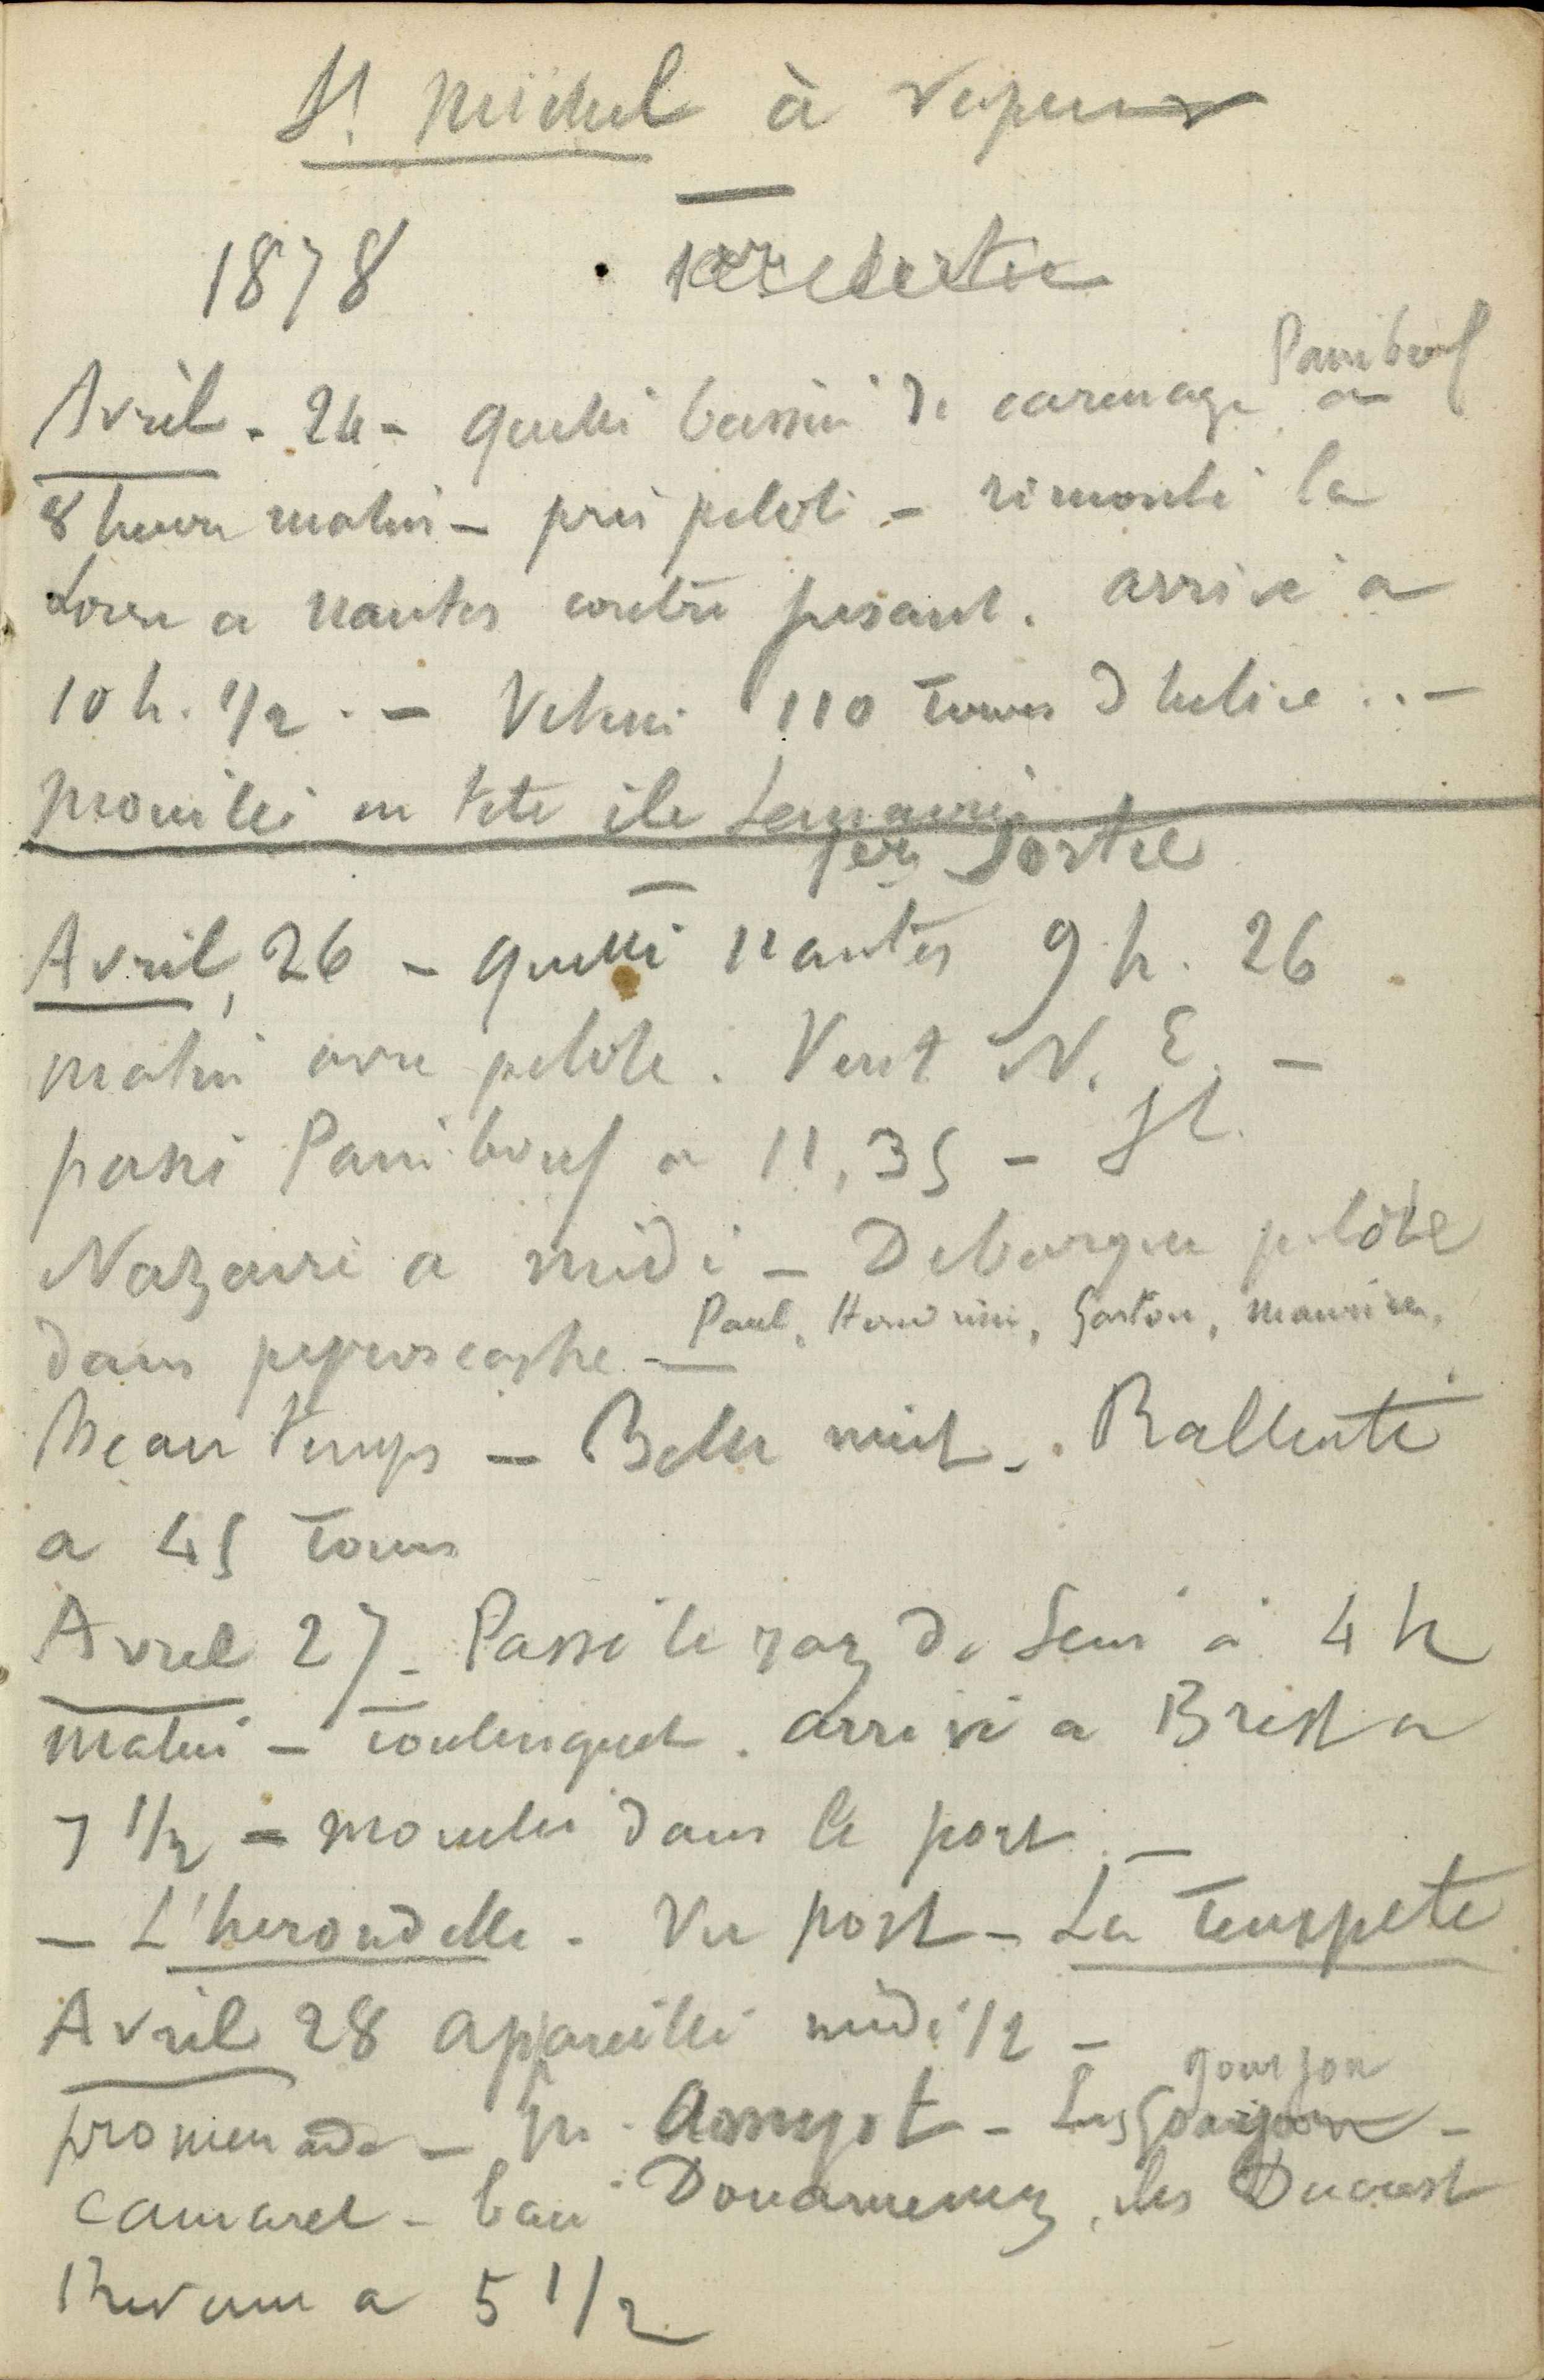 St Michel à vapeur
1878 1ere sortie
Avril - 24 - quitté bassin de carenage Paimboeuf a
8 heures matin - pris pilote - remonté la
Loire a Nantes contre jusant. arrivé a
10 h. 1/2 . - Vitesse 110 tours d helice .. -
mouillé en tete ile Lemaire
1ere Sortie
Avril, 26 - quitté Nantes 9 h. 26
matin avec pilote. Vent N. E. -
passé Paimboeuf a 11,35 - St.
Nazaire a midi - Debarque pilote
dans pyroscaphe - Paul, Hendrini, Gaston, Maurice,
Beau temps - Belle nuit - . Rallenti
a 45 tours
Avril 27 - Passé le raz de Sein à 4 h
matin - Toulinguet . arrivé a Brest a
7 1/2 - mouillé dans le port . -
- L'hirondelle . Vu port - La Tempete
Avril 28 appareillé midi 1/2 -
promenade - Mr. Amyot - Les goujon -
Camaret - baie Douarnenez, iles Ducoust
Revenu a 5 1/2